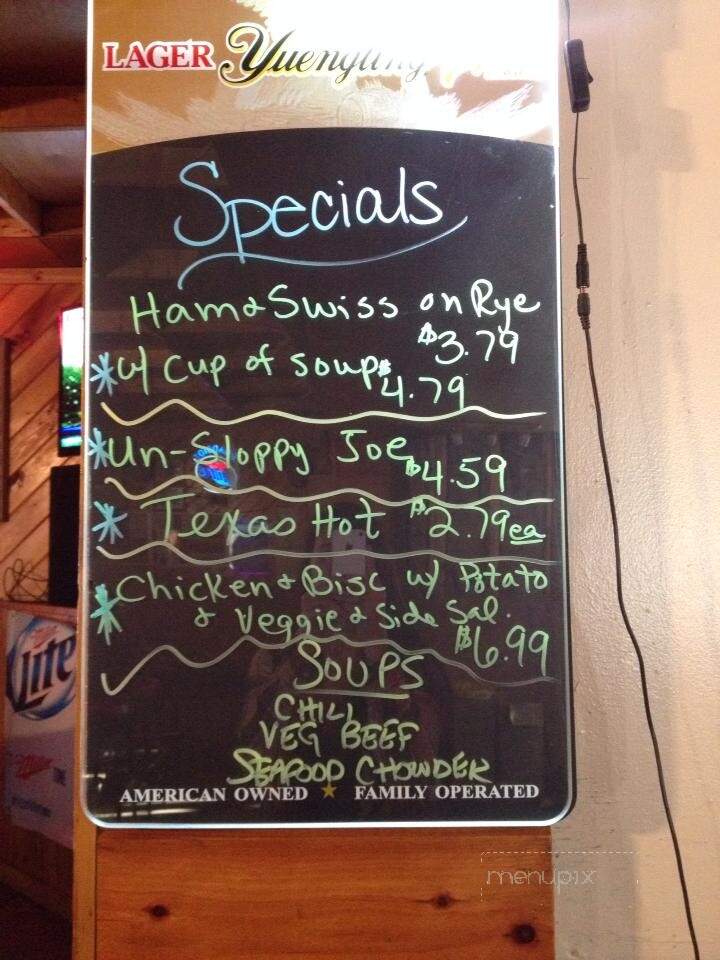 LAGER Yuengling
Specials
Ham & Swiss on Rye
$3.79
*w/ cup of soup $4.79
*Un-Sloppy Joe $4.59
* Texas Hot $2.79 ea
*Chicken & Bisc w/ Potato
& Veggie & Side Sal.
$6.99
SOUPS
CHILI
VEG BEEF
SEAFOOD CHOWDER
AMERICAN OWNED ★ FAMILY OPERATED
Lite
menupix